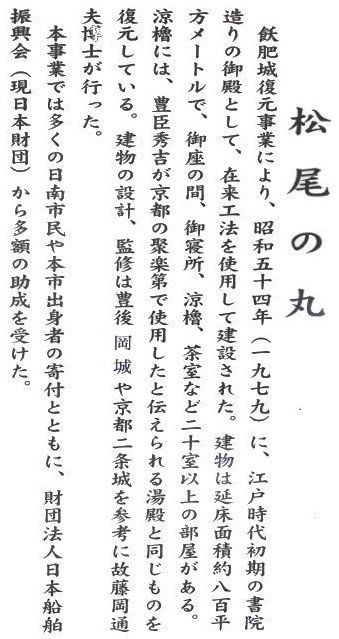 松尾の丸
飫肥城復元事業により、昭和五十四年（一九七九）に、江戸時代初期の書院
造りの御殿として、在来工法を使用して建設された。建物は延床面積約八百平
方メートルで、御座の間、御寝所、涼櫓、茶室など二十室以上の部屋がある。
涼櫓には、豊臣秀吉が京都の聚楽第で使用したと伝えられる湯殿と同じものを
復元している。建物の設計、監修は豊後岡城や京都二条城を参考に故藤岡通
夫博士が行った。
本事業では多くの日南市民や本市出身者の寄付とともに、財団法人日本船舶
振興会（現日本財団）から多額の助成を受けた。